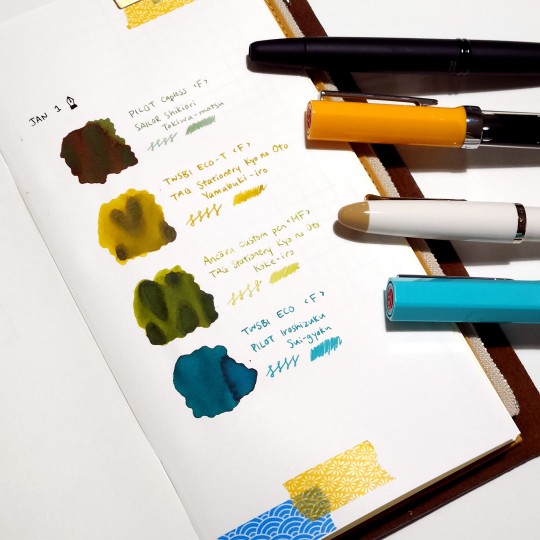 JAN 1
PILOT Capless <F>
SAILOR Shikiori
Tokiwa-matsu
TWSBI ECO-T <F>
TAG Stationery Kyo no Oto
Yamabuki-iro
Ancora Custom pen <MF>
TAG Stationery Kyo no Oto
Koke-iro
TWSBI ECO <F>
PILOT Iroshizuku
Sui-gyoku